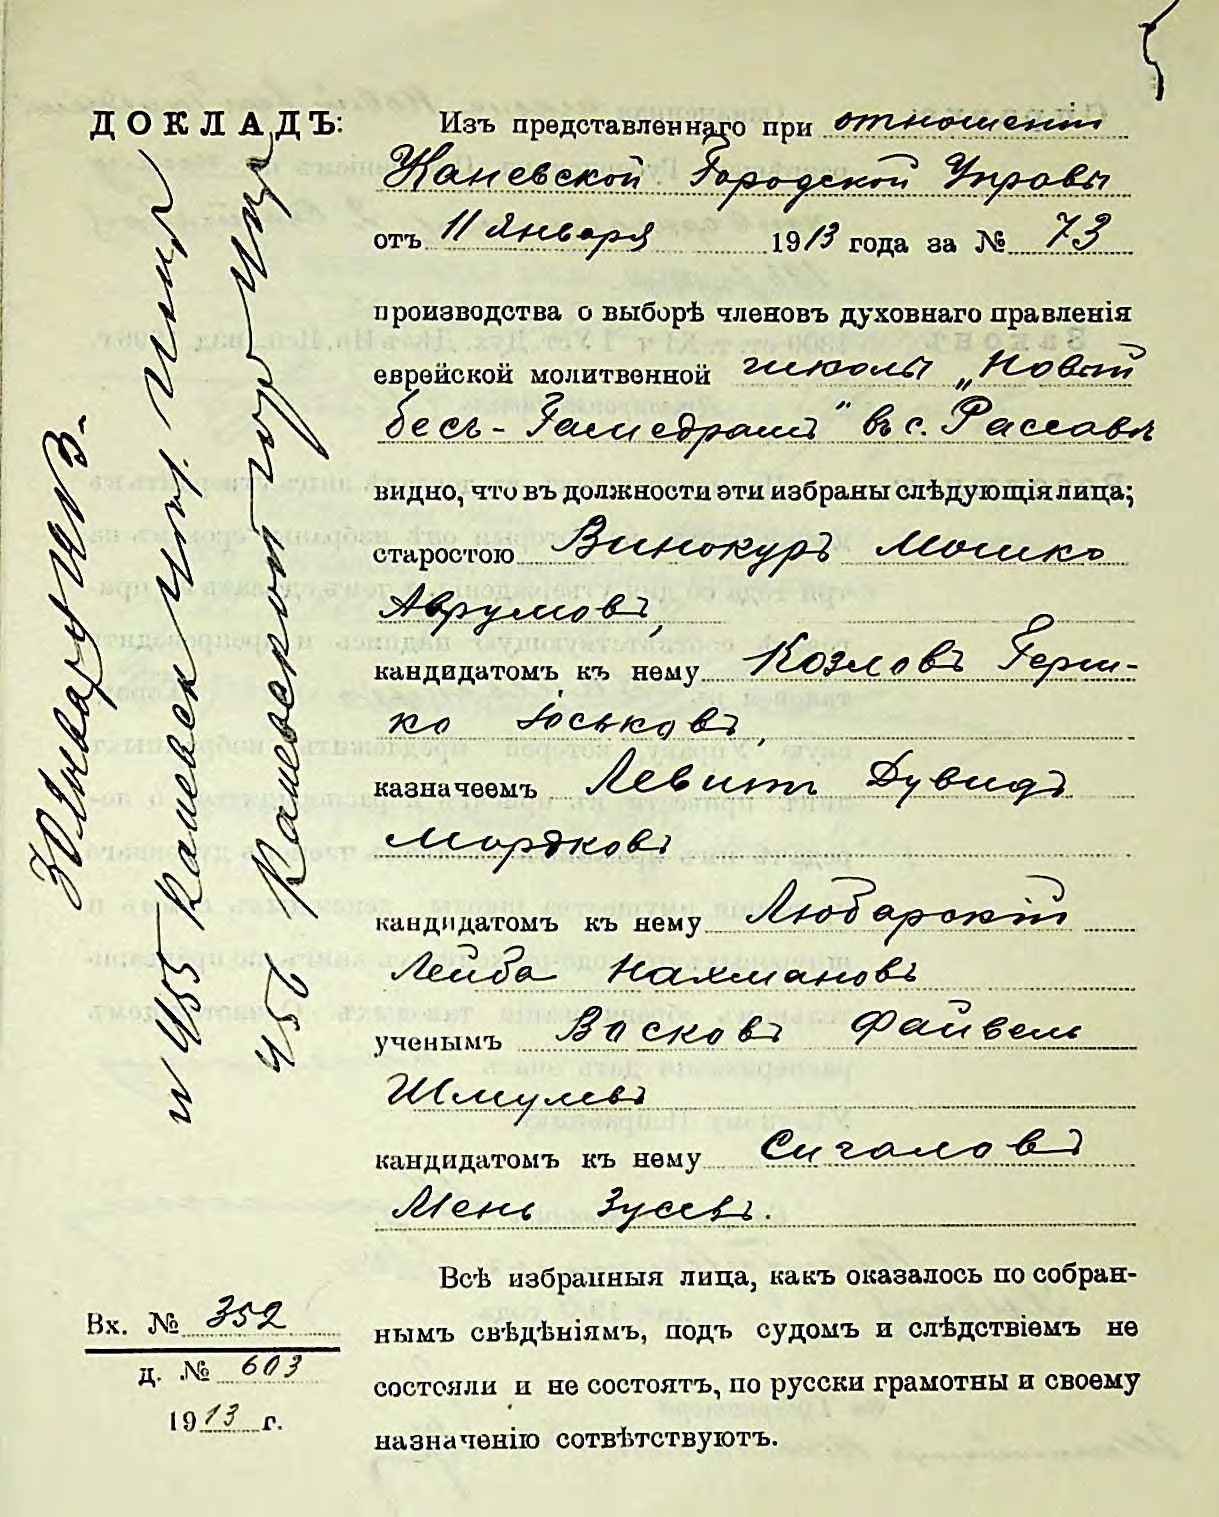 ДОКЛАДЪ:
Изъ представленнаго при отношеніи
Каневской Городской Управы
отъ 11 Января 1913 года за № 73
производства о выборѣ членовъ духовнаго правленія
еврейской молитвенной школы „Новый
бесъ-Гамедрашъ" въ с. Рассавѣ
видно, что въ должности эти избраны слѣдующія лица;
старостою Винокуръ Мошко
Аврумовъ,
кандидатомъ къ нему Козловъ Герш-
ко Іоськовъ,
казначеемъ Левитъ Дувидъ
Мордковъ
кандидатомъ къ нему Любарскій
Лейба Нахмановъ
ученымъ Васковъ Файвель
Шмулевъ
кандидатомъ къ нему Сигаловъ
Мень Зусевъ.
Всѣ избранныя лица, какъ оказалось по собран-
нымъ свѣдѣніямъ, подъ судомъ и слѣдствіемъ не
состояли и не состоятъ, по русски грамотны и своему
назначенію сотвѣтствуютъ.
30 Января 1913.
№ 455 Каневск
456 Каневской гор
Вх. № 352
д. № 603
1913 г.